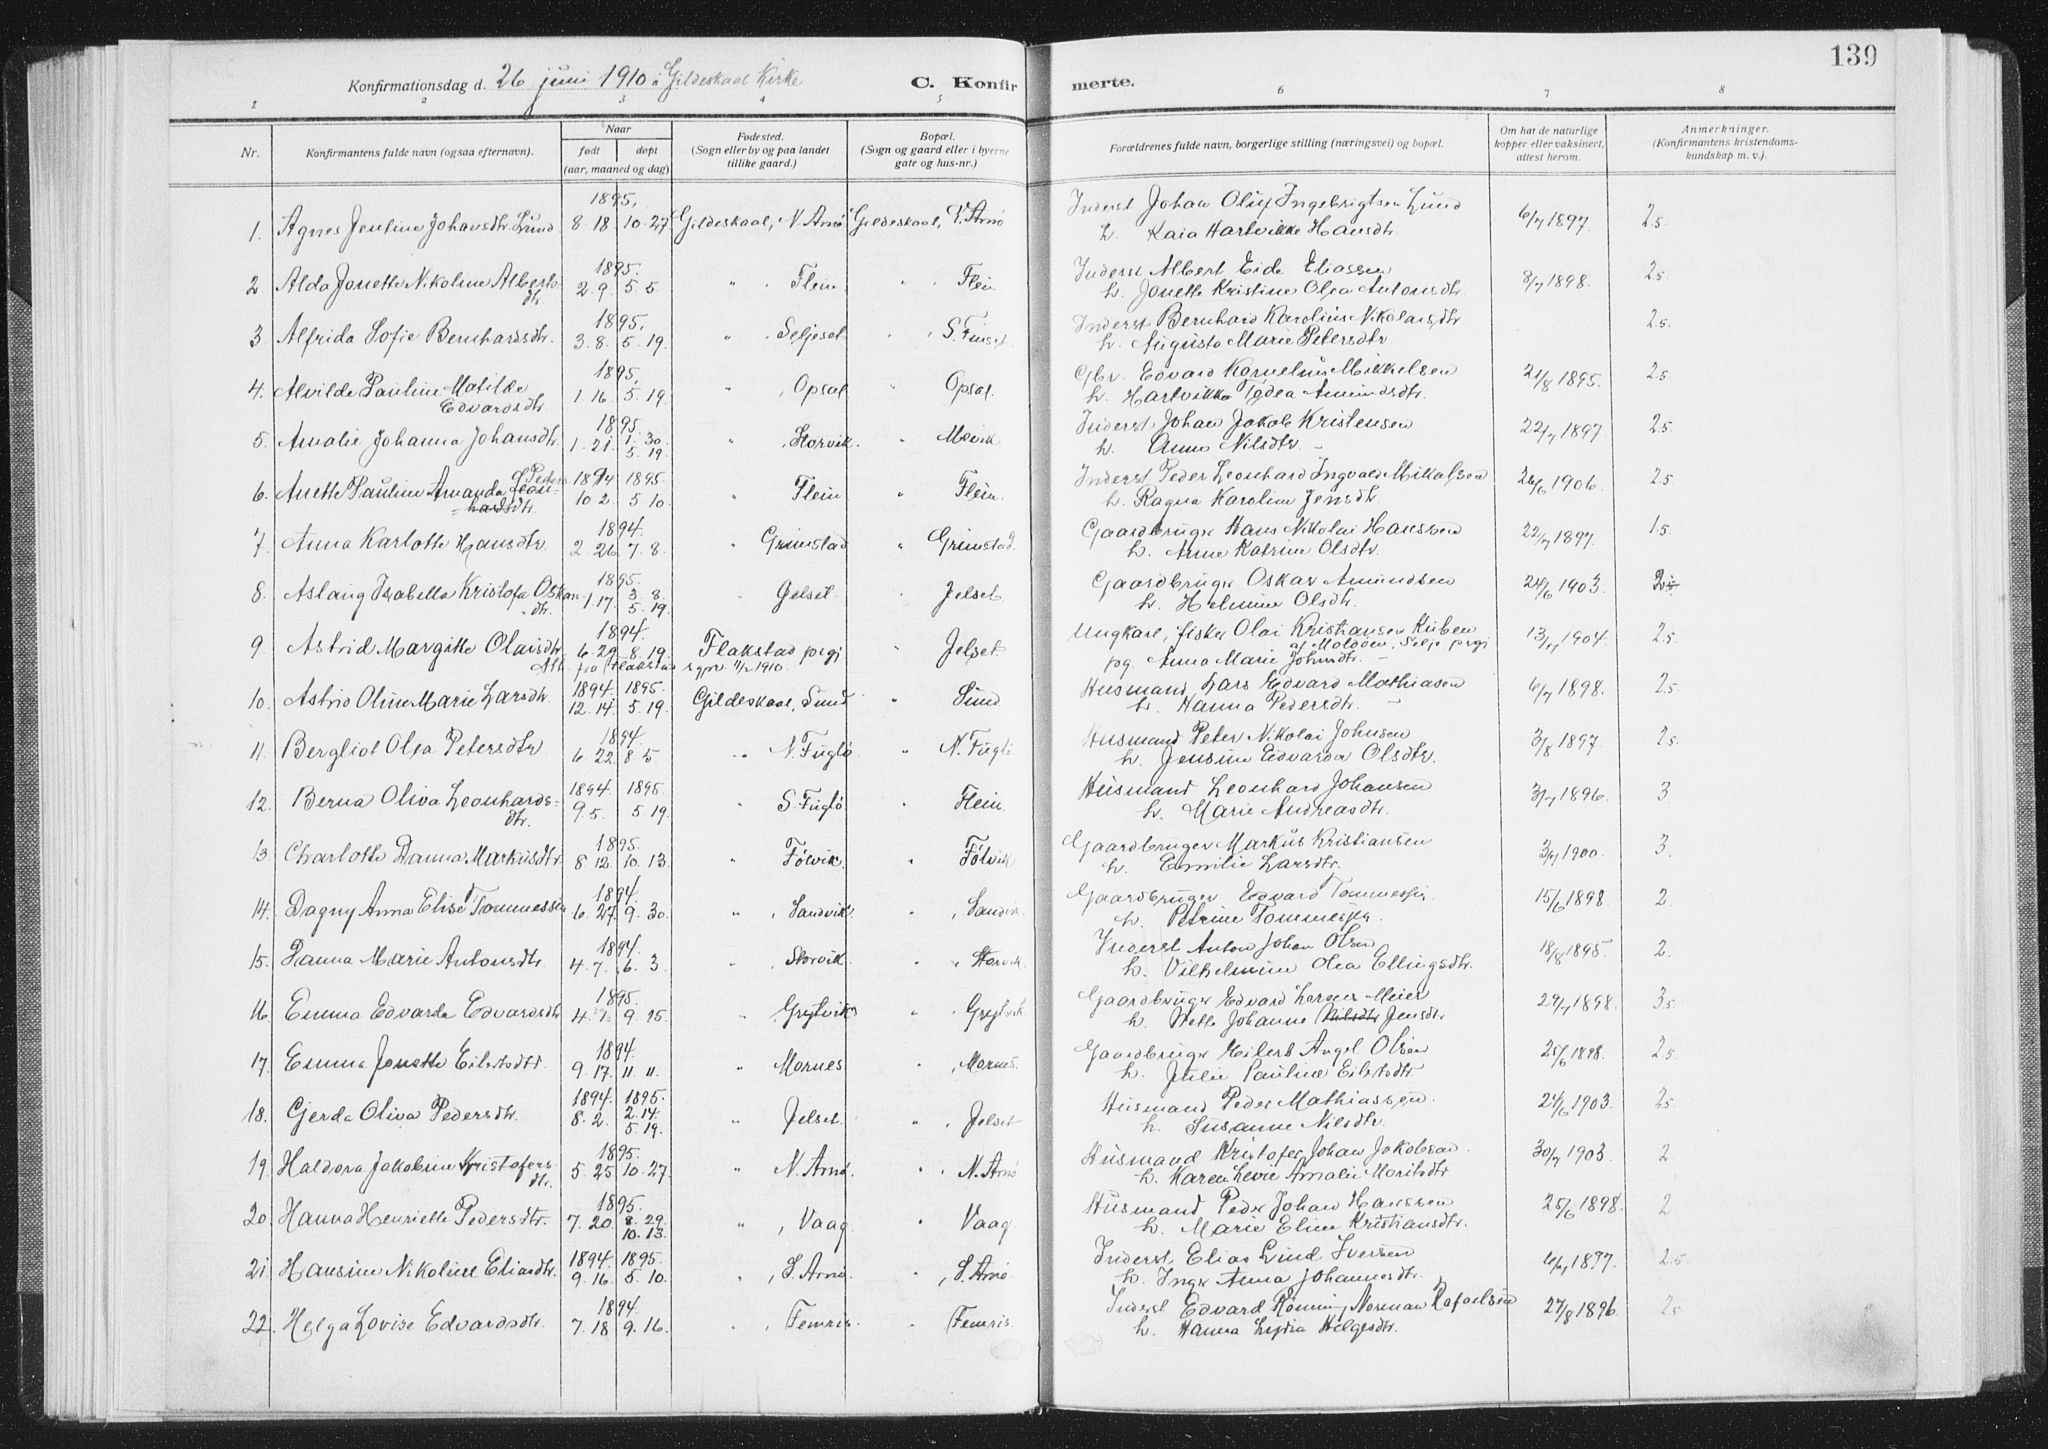 139
Konfirmationsdag d. 26 juni 1910 i Gildeskaal Kirke C. Konfirmerte.
1 2 3 4 5 6 7 8
Nr. Konfirmantens fulde navn (ogsaa efternavn). Naar født døpt (aar, maaned og dag) Fødested. (Sogn eller by og paa landet tillike gaard.) Bopæl. (Sogn og gaard eller i byerne gate og hus-nr.) Forældrenes fulde navn, borgerlige stilling (næringsvei) og bopæl. Om hat de naturlige kopper eller vaksinert, attest herom. Anmerkninger. (Konfirmantens kristendomskundskap m. v.).
1895. Inderst Johan Oluf Ingebrigtsen Lund
1. Agnes Jentine Johansdtr. Lund 8 18 10 27 Gildeskaal, N. Arnö Gildeskaal, N. Arnö h. Kaia Hartvikke Hansdtr. 6/7 1897. 2.5
1895. Inderst Albert Eide Eliassen
2 Alda Jonette Nikoline Albertsdtr. 2. 9. 5. 5 " Flein " Flein h. Jonette Kristine Olea Antonsdtr. 8/7 1898. 2.5
1895. Inderst Bernhard Karolius Nikolaisdtr
3 Alfrida Sofie Bernhardsdtr. 3. 8. 5. 19. " Seljeset " S. Finset h. Augusta Marie Petersdtr. 2.5
1895. Gbr. Edvard Kornelius Mikkelsen
4. Alvilde Pauline Matilde Edvardsdtr. 1. 16. 5. 19. " Opsal " Opsal. h. Hartvikka Todea Amundsdtr. 21/8 1895. 2.5
1895. Inderst Johan Jakob Kristensen
5. Amalie Johanna Johansdtr. 1. 21. 1. 30. 5. 19. " Storvik " Mevik h. Anna Nilsdtr. 22/7 1897. 2.5
1894 1895 Inderst Peder Leonhard Ingvald Mikalsen
6. Anette Pauline Amanda Peders Leonhardsdtr. 10 2. 5 10. " Flein " Flein. h. Ragna Karoline Jensdtr. 26/6 1906. 2.5
1894. Gaardbruger Hans Nikolai Hanssen
7. Anna Karlotte Hansdtr. 2. 26. 7. 8. " Grimstad " Grimstad. h. Anne Katrine Olsdtr. 22/7 1897. 1.5
1895. Gaardbruger Oskar Amundsen
8. Aslaug Isabella Kristofa Oskarsdtr. 1. 17. 3. 8. 5. 19. " Gelset. Jelset. h. Helmine Olsdtr. 24/6 1903.
1894. Ungkarl, fisker Olai Kristiansen Kuben af Moldöen, Selje prgj
9 Astrid Margitte Olaisdtr. 6. 29. 8. 19. Flakstad prgj " Jelset. pg. Anna Marie Johnsdtr. 1904. 2.5
Att. fra Flakstad sgpr. 1910.
1894. 1895. Husmand Lars Edvard Mathiasen
10. Astrid Oline Marie Larsdtr. 12. 14. 5. 19. Gildeskaal, Sund " Sund h. Hanna Pedersdtr. 6/7 1898. 2.5
1894. Husmand Peter Nikolai Johnsen
11. Bergliot Olea Petersdtr 6 22. 8 5. " N. Fuglö " N. Fuglö h. Jensine Edvarda Olsdtr. 3/8 1897. 2.5
1894. 1895. Husmand Leonhard Johansen
12. Berna Oliva Leonhardsdtr. 9. 5. 5. 19. " S. Fuglö " Flein. h. Marie Andreasdtr. 3/7 1896. 3
1895. Gaardbruger Markus Kristiansen
13. Charlotte Danna Markusdtr. 8 12. 10. 13. " Fölvik. " Fölvik h. Emilie Larsdtr. 1900. 3.
1894. Gaardbruger Edvard Tommessen
14. Dagny Anna Elise Tommessen 6. 27. 9. 30. " Sandvik. " Sandvik. h. Petrine Tommessen. 15/6 1898. 2.
1894. Inderst Anton Johan Olsen
15. Danna Marie Antonsdtr. 4. 7. 6. 3. " Storvik. " Storvik. h. Vilhelmine Olea Ellingsdtr. 18/8 1895. 2.
1895. Gaardbruger Edvard Lorens Meier
16. Emma Edvarda Edvardsdtr 4. 9. 15. " Grytvik " Grytvik h. Mette Johanne Nilsdtr Jensdtr 29/7 1898. 3.5
1894. Gaardbruger Eilert Angel Olsen
17. Emma Jonette Eilertsdtr. 9. 17. 11. 11. " Mornes " Mornes. h. Julie Pauline Eilertsdtr. 25/6 1898. 2.5
1894. 1895. Husmand Peder Mathiassen.
18. Gjerda Oliva Pedersdtr. 8. 2. 2. 14. 5. 19. " Jelset. " Jelset h. Susanne Nilsdtr. 24/6 1903. 2.5
1895. Husmand Kristofer Johan Jakobsen
19. Haldora Jakobine Kristofersdtr. 5. 25 10. 27. " N. Arnö. " N. Arnö h. Karen Levie Amalie Moritsdtr 30/7 1903. 2
1895. Husmand Peder Johan Hanssen
20. Hanna Henriette Pedersdtr. 7. 20. 8. 29. 10. 13. " Vaag " Vaag. h. Marie Eline Kristiansdtr. 25/6 1898. 2.
1894. 1895. Inderst Elias Lind Iversen
21. Hansine Nikoline Eliasdtr. 9. 16. 5. 10. " S. Arnö. " S. Arnö h. Inger Anna Johannesdtr. 1897. 2.5
1894. Inderst Edvard Rönning Norman Rafaelsen
22. Helga Lovise Edvardsdtr. 7. 18 9. 16. " Femris. " Femris. h. Hanna Lydia Helgesdtr. 27/8 1896. 2.5